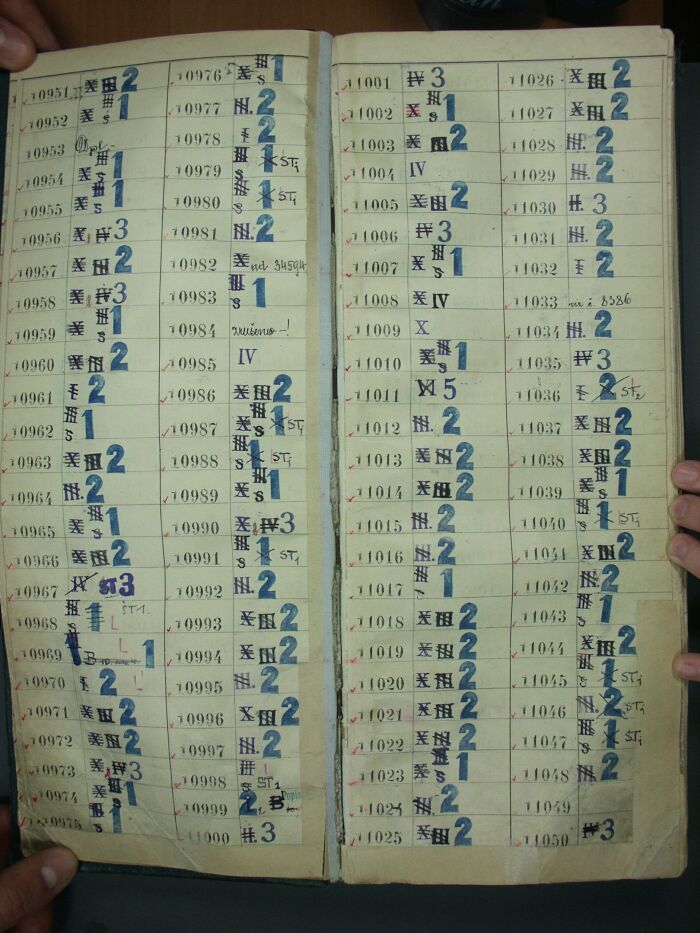 10951 X III 2
10952 X III S 1
10953
10954 X III S 1
10955 X III S 1
10956 X IV 3
10957 X III 2
10958 X IV 3
10959 X III S 1
10960 X III 2
10961 I 2
10962 III S 1
10963 X III 2
10964 III. 2
10965 X III S 1
10966 X III 2
10967 IV ST 3
10968 III S 1 ST1 L
10969 1 B 1 L
10970 I 2 L
10971 X III 2
10972 X III 2
10973 X IV 3
10974 X III S 1
10975 III S 1
10976 X III S 1
10977 III. 2
10978 I 2
10979 III S 1 X ST1
10980 III S 1 X ST1
10981 III. 2
10982 X od 34594
10983 III S 1
10984 zrušeno -!
10985 IV
10986 X III 2
10987 X III S 1 X ST1
10988 III S 1 X ST1
10989 X III S 1
10990 X IV 3
10991 III S 1 X ST1
10992 III. 2
10993 X III 2
10994 X III 2
10995 III. 2
10996 X III 2
10997 III. 2
10998 III S ST1
10999 2 B Popis
11000 II. 3
11001 IV 3
11002 X III S 1
11003 X III 2
11004 IV
11005 X III 2
11006 IV 3
11007 X III S 1
11008 X IV
11009 X
11010 X III S 1
11011 VI 5
11012 III. 2
11013 X III 2
11014 X III 2
11015 III. 2
11016 III. 2
11017 III S 1
11018 X III 2
11019 X III 2
11020 X III 2
11021 X III 2
11022 X III 2
11023 X III S 1
11024 III. 2
11025 X III 2
11026 X III 2
11027 X III 2
11028 III. 2
11029 III. 2
11030 II. 3
11031 III. 2
11032 I 2
11033 8386
11034 III. 2
11035 IV 3
11036 I 2 ST2
11037 X III 2
11038 X III 2
11039 X III S 1
11040 III S 1 X ST1
11041 X III 2
11042 III. 2
11043 III S 1
11044 X III 2
11045 III S 1 X ST1
11046 III. 2 X ST1
11047 III S 1 X ST1
11048 III. 2
11049
11050 3